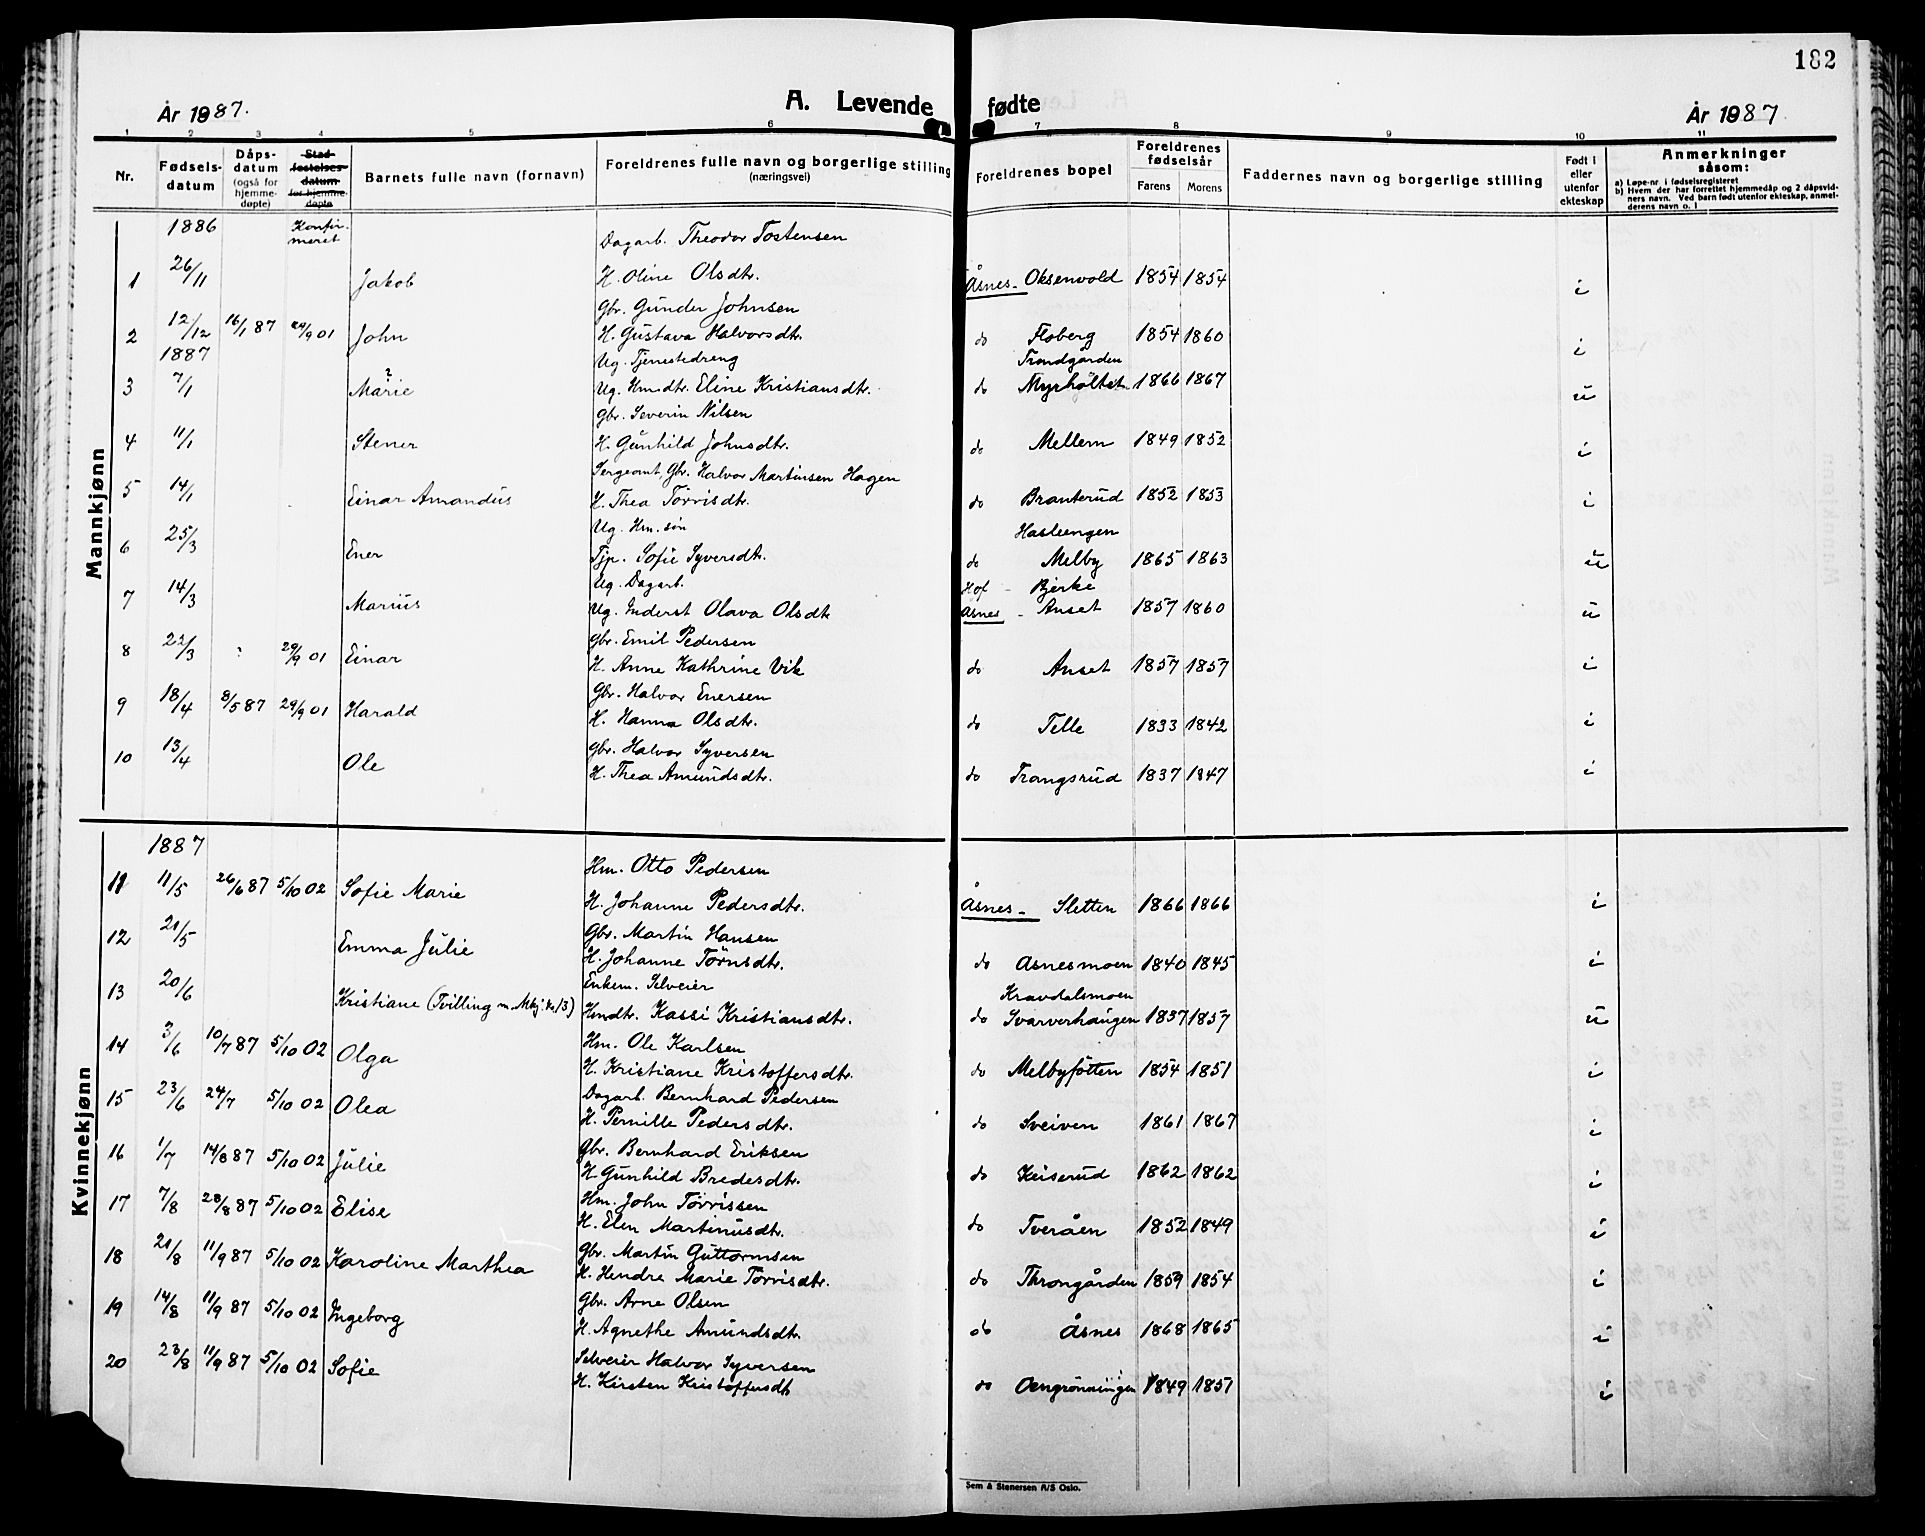 182
År 1987.
A. Levende fødte
År 1987
1 2 3 4 5 6 7 8 9 10 11
Nr.
Fødsels-
datum
Dåps-
datum
(også for
hjemme-
døpte)
Stad-
festelses-
datum
for hjemme-
døpte
Barnets fulle navn (fornavn)
Foreldrenes fulle navn og borgerlige stilling
(næringsvei)
Foreldrenes bopel
Foreldrenes
fødselsår
Farens Morens
Faddernes navn og borgerlige stilling
Født i
eller
utenfor
ekteskap
Anmerkninger
såsom:
a) Løpe-nr. i fødselsregisteret
b) Hvem der har forrettet hjemmedåp og 2 dåpsvid-
ners navn. Ved barn født utenfor ekteskap, anmel-
derens navn o. l
Mannkjønn
1886 Konfir-
meret
Dagarb. Theodor Tostensen
1 26/11 Jakob H. Oline Olsdtr. Åsnes - Oksenvold 1854 1854 i
Gbr. Gunder Johnsen
2 12/12 16/1 87 29/9 01 John H. Gustava Halvorsdtr. do Floberg 1854 1860 i
1887 Ug. Tjenestedreng Trondgården
3 7/1 Marie ? Ug. Hmdtr. Eline Kristiansdtr. do Myrholtet 1866 1867 u
Gbr. Severin Nilsen
4 11/1 Stener H. Gunhild Johnsdtr. do Mellem 1849 1852 i
Sergeant, Gbr. Halvor Martinsen Hagen
5 14/1 Einar Amandus H. Thea Torrisdtr. do Branterud 1852 1853 i
Ug. Hm. søn Hasleengen
6 25/3 Ener Tjp. Sofie Syversdtr. do Melby 1865 1863 u
Ug. Dagarb. Hof - Bjerke
7 14/3 Marius Ug. Inderst Olava Olsdtr Åsnes - Anset 1857 1860 u
Gbr. Emil Pedersen
8 22/3 29/9 01 Einar H. Anne Kathrine Vik do Anset 1857 1857 i
Gbr. Halvor Enersen
9 18/4 8/5 87 29/9 01 Harald H. Hanna Olsdtr. do Telle 1833 1842 i
Gbr. Halvor Syversen
10 13/4 Ole H. Thea Amundsdtr. do Trangsrud 1837 1847 i
Kvinnekjønn
1887
Hm. Otto Pedersen
11 11/5 26/6 87 5/10 02 Sofie Marie H. Johanne Pedersdtr. Åsnes - Sletten 1866 1866 i
Gbr. Martin Hansen
12 21/5 Emma Julie H. Johanne Törnsdtr. do Åsnesmoen 1840 1845 i
Enkem. Selveier Kravdalsmoen
13 20/6 Kristiane (Tvilling m. Mkj. No 13) Hmdtr. Kassi Kristiansdtr. do Svarverhaugen 1837 1857 u
Hm. Ole Karlsen
14 3/6 10/7 87 5/10 02 Olga H. Kristiane Kristoffersdtr. do Melbyfötten 1854 1851 i
Dagarb. Bernhard Pedersen
15 23/6 24/7 5/10 02 Olea H. Pernille Pedersdtr. do Sveiven 1861 1867 i
Gbr. Bernhard Eriksen
16 1/7 14/8 87 5/10 02 Julie H Gunhild Bredesdtr. do Keiserud 1862 1862 i
Hm. John Torrissen
17 7/8 28/8 87 5/10 02 Elise H. Elen Martinusdtr. do Tveråen 1852 1849 i
Gbr. Martin Guttormsen
18 21/8 11/9 87 5/10 02 Karoline Marthea H. Hendre Marie Torrisdtr. do Throngården 1859 1854 i
Gbr. Arne Olsen
19 14/8 11/9 87 5/10 02 Ingeborg H. Agnethe Amundsdtr. do Åsnes 1868 1865 i
Selveier Halvor Syversen
20 23/8 11/9 87 5/10 02 Sofie H. Kirsten Kristoffersdt do Oengrönningen 1849 1851 i
Sem & Stenersen A/S Oslo.